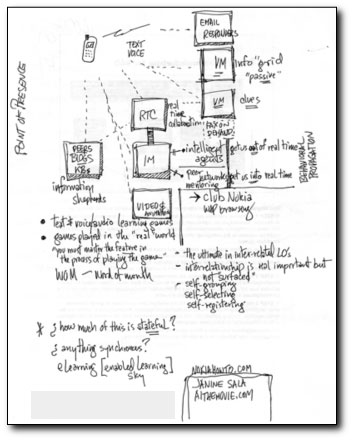 EMAIL
RESPONDERS
TEXT
VOICE
VM
info "grid"
"passive"
POINT OF PRESENCE
VM
clues
RTC
real
time
collaboration
FAX ON
DEMAND
PEERS
BLOGS
KBs
IM
intelligent
agents
get us out of real time
peer
networks
mentoring
put us into real time
BEHAVIORAL
PROPAGATION
information
shepherds
VIDEO &
→ Club Nokia
WAP browsing
• text & voice/audio learning games
• games played in the "real" world
"you must master the feature in
the process of playing the game"
WOM – Word of mouth
- the ultimate in inter-related LOs
- interrelationship is not important but
not surfaced"
- self-grouping
self-selecting
self-registering
* ¿ how much of this is stateful?
¿ anything synchronous?
elearning [enabled learning]
sky
NOKIAHOWTO.COM
JANINE SALA
AITHEMOVIE.COM